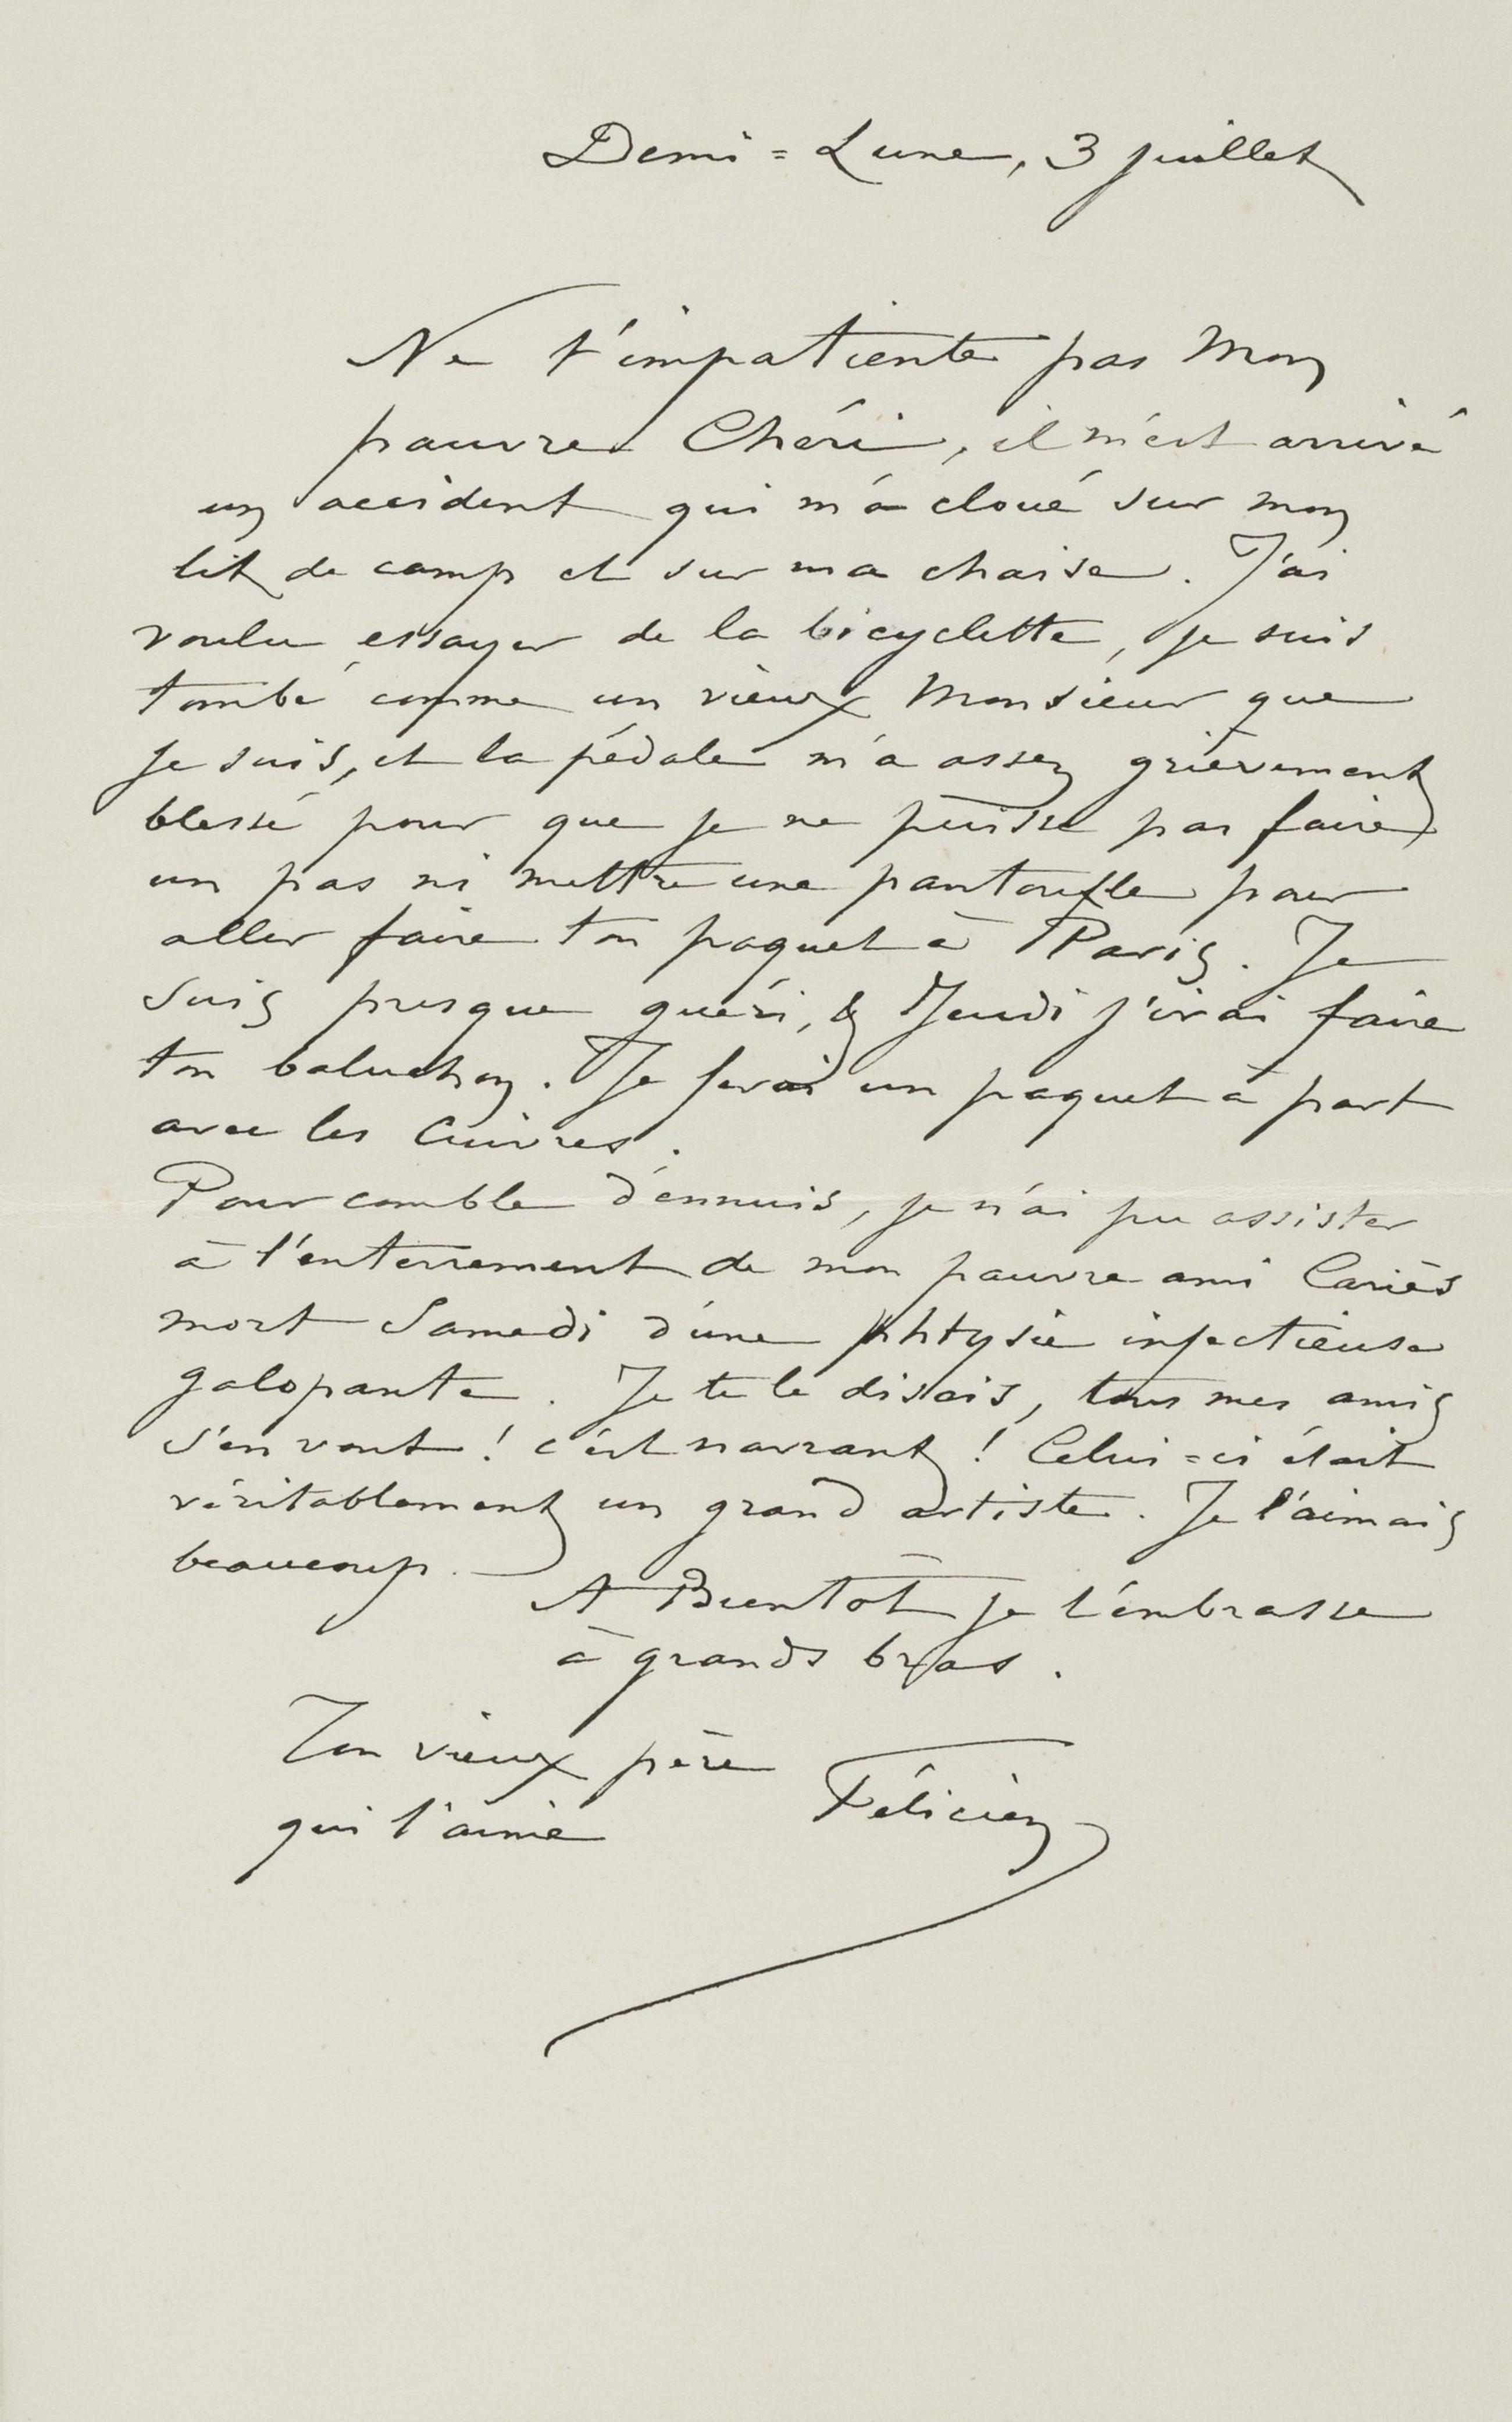 Demi=Lune, 3 juillet
Ne t'impatiente pas Mon
pauvre Chéri, il m'est arrivé
un accident qui m'a cloué sur mon
lit de camp et sur ma chaise. J'ai
voulu essayer de la bicyclette, je suis
tombé comme un vieux Monsieur que
je suis, et la pédale m'a assez grièvement
blessé pour que je ne puisse pas faire
un pas ni mettre une pantoufle pour
aller faire ton paquet à Paris. Je
suis presque guéri, & Jeudi j'irai faire
ton baluchon. Je ferai un paquet à part
avec les Cuivres.
Pour comble d'ennuis, je n'ai pu assister
à l'enterrement de mon pauvre ami Cariès
mort Samedi d'une phtysie infectieuse
galopante. Je te le disais, tous mes amis
s'en vont ! c'est navrant ! Celui=ci était
véritablement un grand artiste. Je l'aimais
beaucoup.
A Bientôt je t'embrasse
à grands bras.
Ton vieux père
qui t'aime
Félicien